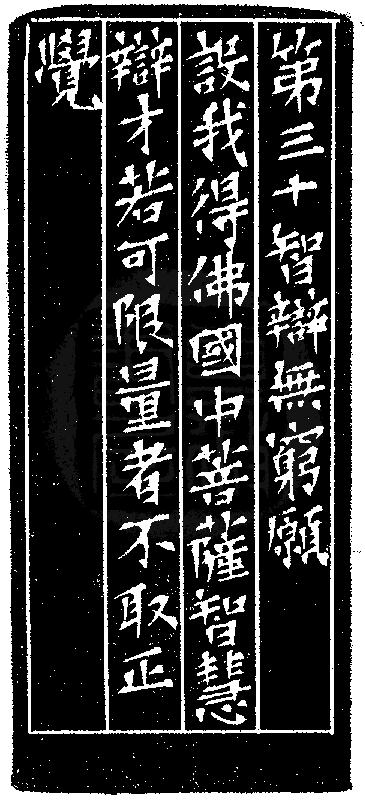 第三十智辯無窮願
設我得佛國中菩薩智慧
辯才若可限量者不取正
覺